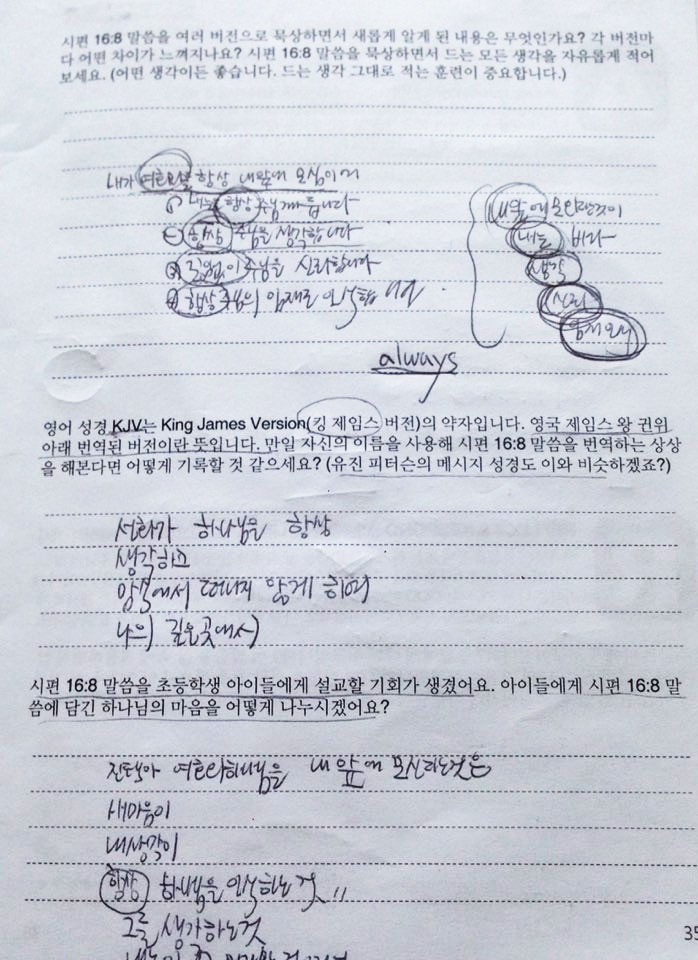 시편 16:8 말씀을 여러 버전으로 묵상하면서 새롭게 알게 된 내용은 무엇인가요? 각 버전마
다 어떤 차이가 느껴지나요? 시편 16:8 말씀을 묵상하면서 드는 모든 생각을 자유롭게 적어
보세요. (어떤 생각이든 좋습니다. 드는 생각 그대로 적는 훈련이 중요합니다.)
내가 여호와를 항상 내 앞에 모심이여
나는 항상 주님께 둡니다
항상 주님을 생각합니다
끊임없이 주님을 신뢰합니다
항상 주님의 임재로 인식합니다
내 앞에 모신다는 것이
내눈 바라
생각
신뢰
임재 인식
always
영어 성경 KJV는 King James Version(킹 제임스 버전)의 약자입니다. 영국 제임스 왕 권위
아래 번역된 버전이란 뜻입니다. 만일 자신의 이름을 사용해 시편 16:8 말씀을 번역하는 상상
을 해본다면 어떻게 기록할 것 같으세요? (유진 피터슨의 메시지 성경도 이와 비슷하겠죠?)
하나님을 항상
생각하고
앞에서 떠나지 않게 하여
나의 깊은 곳에서
시편 16:8 말씀을 초등학생 아이들에게 설교할 기회가 생겼어요. 아이들에게 시편 16:8 말
씀에 담긴 하나님의 마음을 어떻게 나누시겠어요?
여호와하나님을 내 앞에 모신다는것은
내마음이
내생각이
항상 하나님을 인식하는 것
그를 생각하는것
35